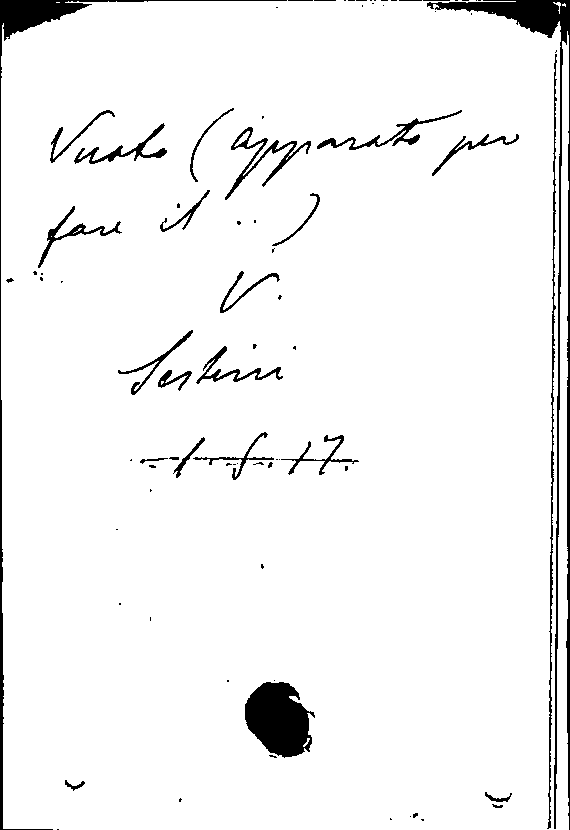 Vuoto (apparato per
fare il ..)
V.
Sestini
1. S. 17.